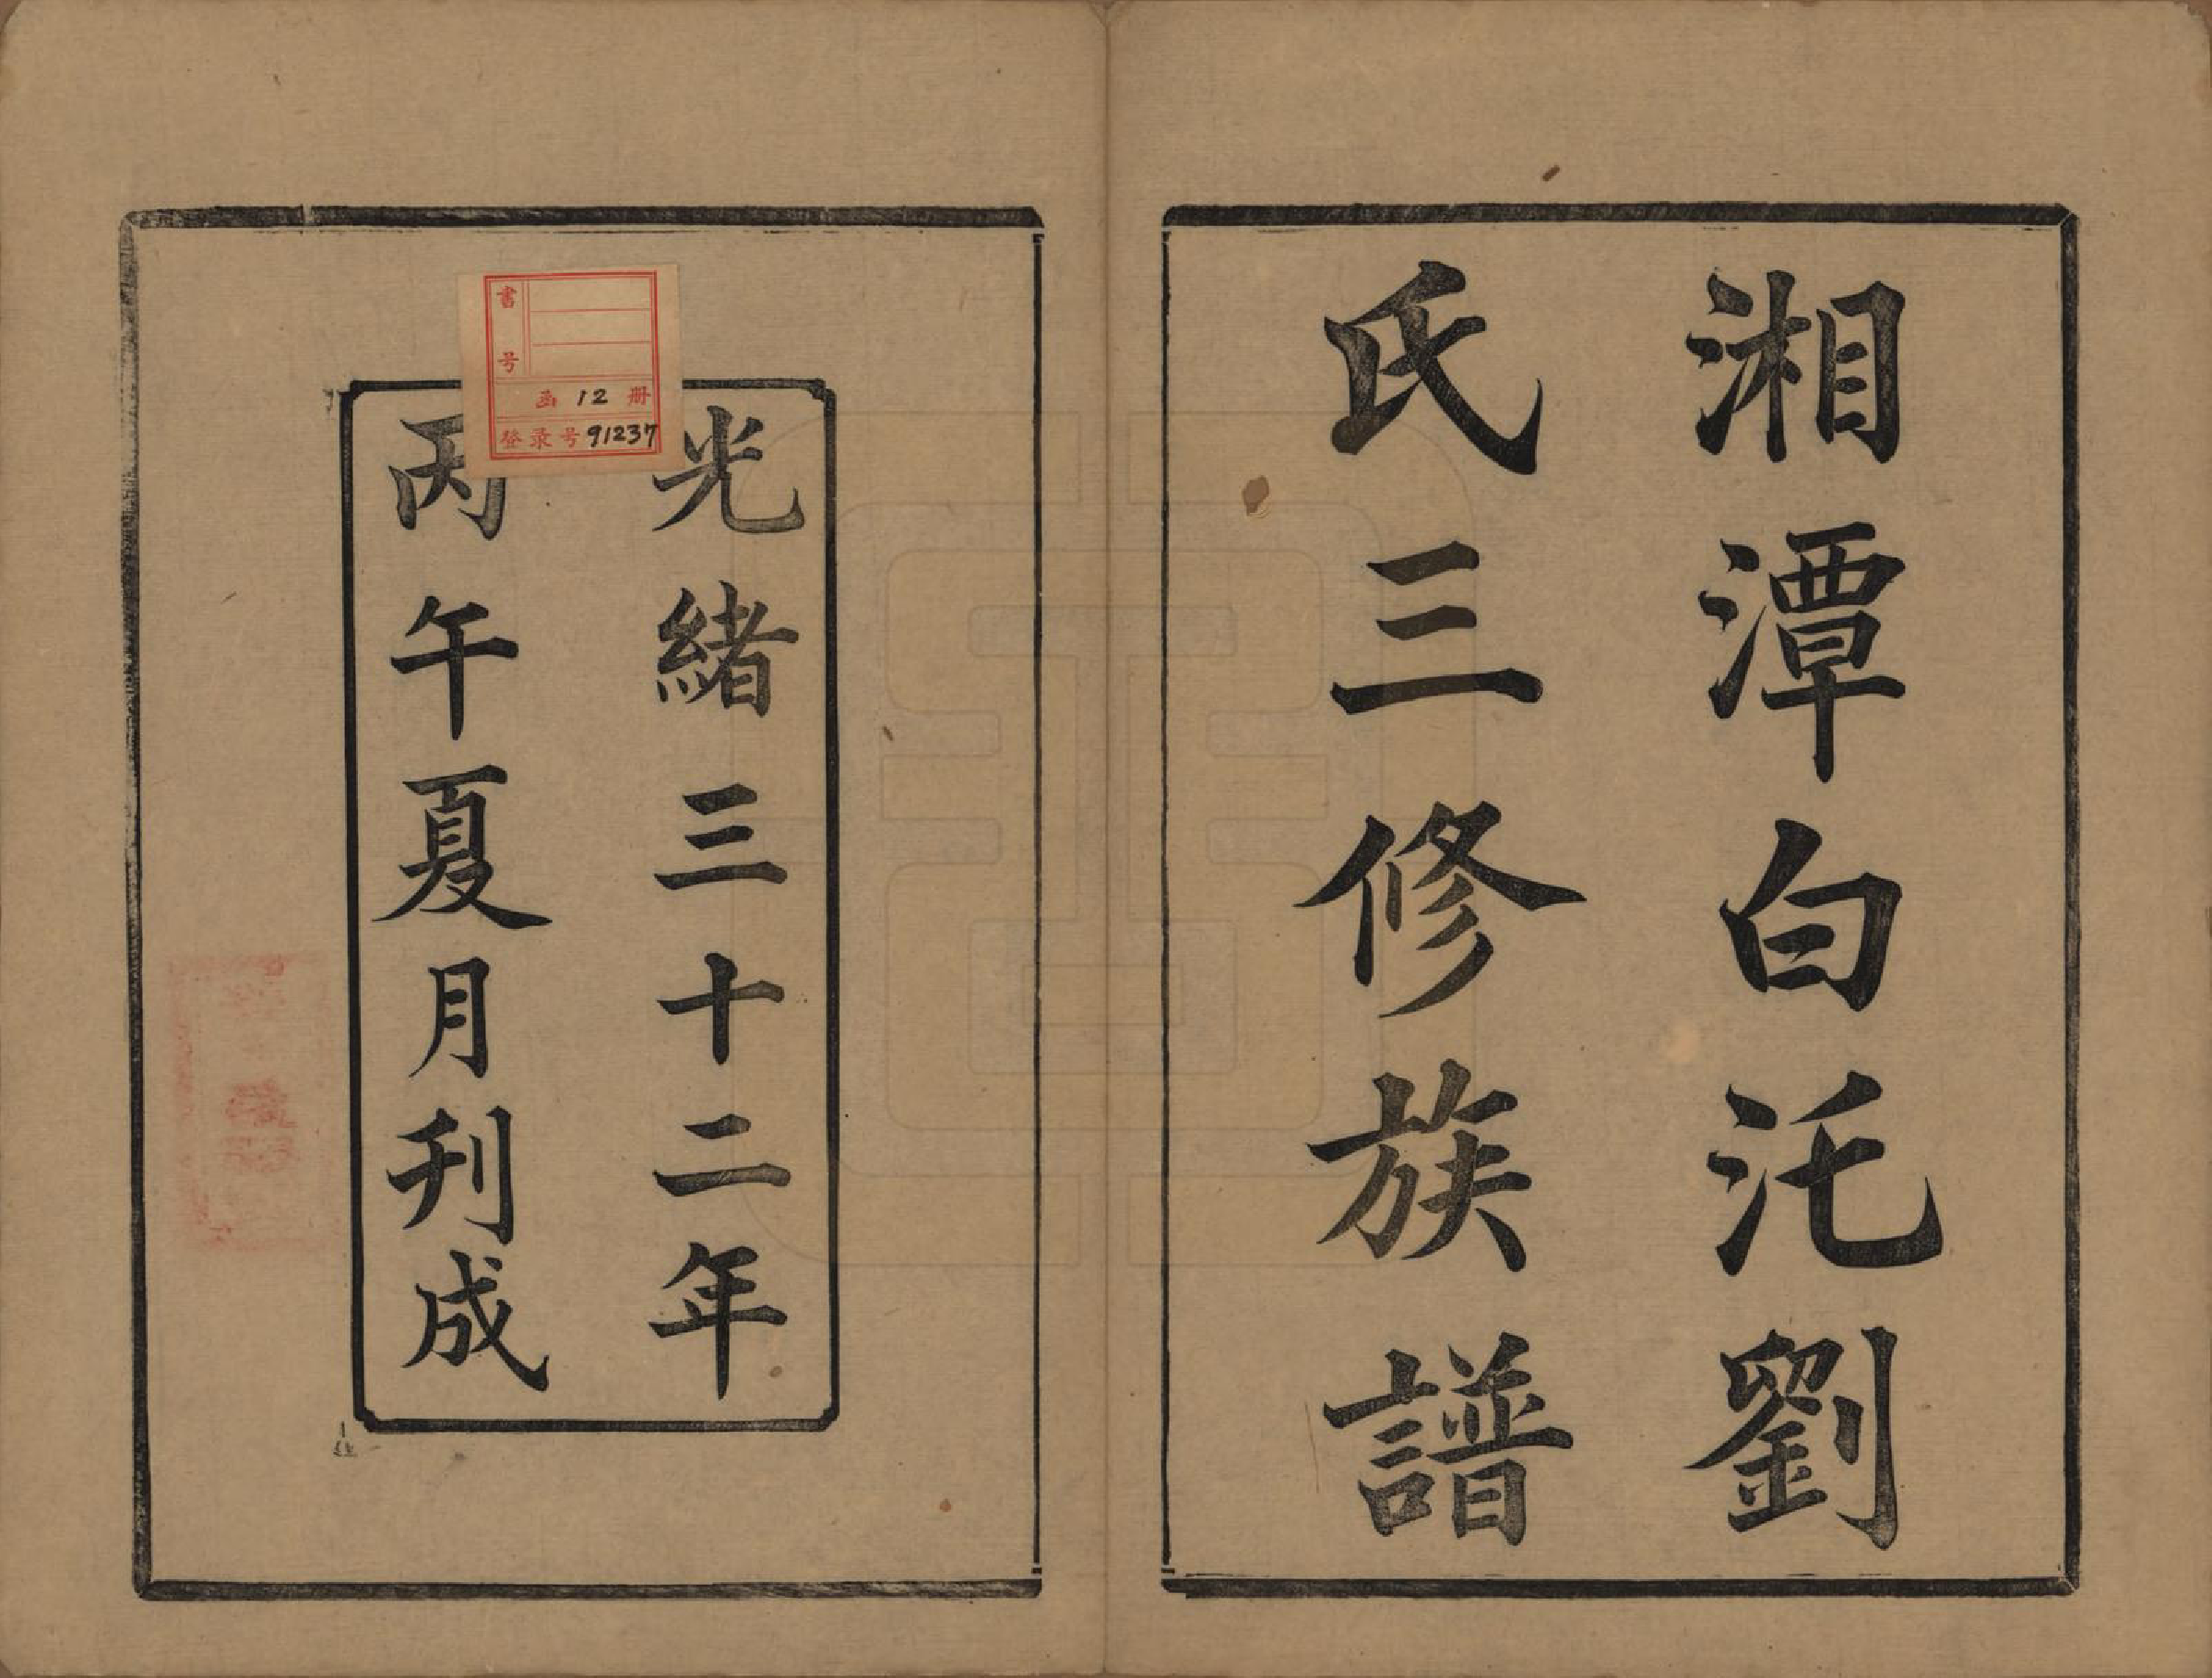 湘潭白汑劉
氏三修族譜
光緒三十二年
丙午夏月刊成
書号
函 12 册
登录号 91237